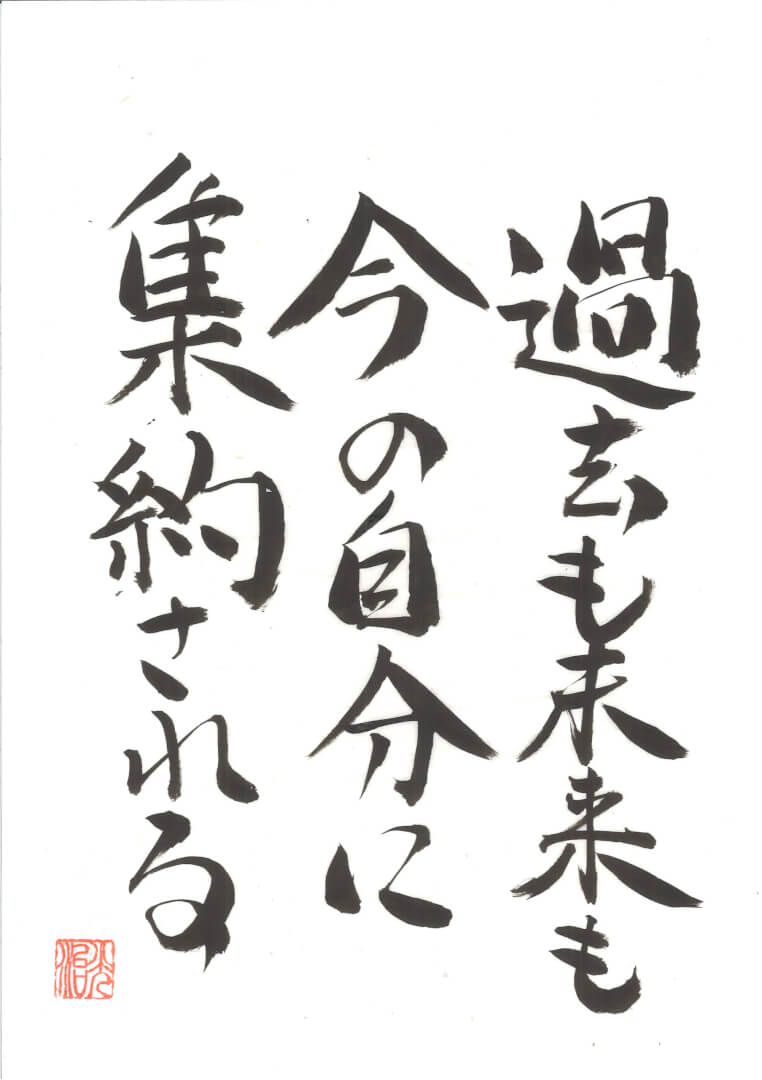 過去も未来も
今の自分に
集約される